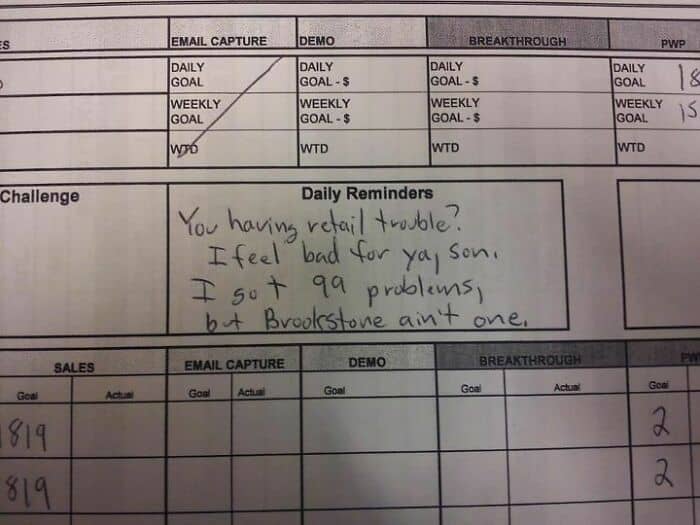 ES EMAIL CAPTURE DEMO BREAKTHROUGH PWP
DAILY GOAL DAILY GOAL - $ DAILY GOAL - $ DAILY GOAL 18
WEEKLY GOAL WEEKLY GOAL - $ WEEKLY GOAL - $ WEEKLY GOAL
WTD WTD WTD WTD
Challenge Daily Reminders
You having retail trouble?
I feel bad for ya, son.
I got 99 problems,
but Brookstone ain't one.
SALES EMAIL CAPTURE DEMO BREAKTHROUGH PW
Goal Actual Goal Actual Goal Goal Actual Goal
819 2
819 2